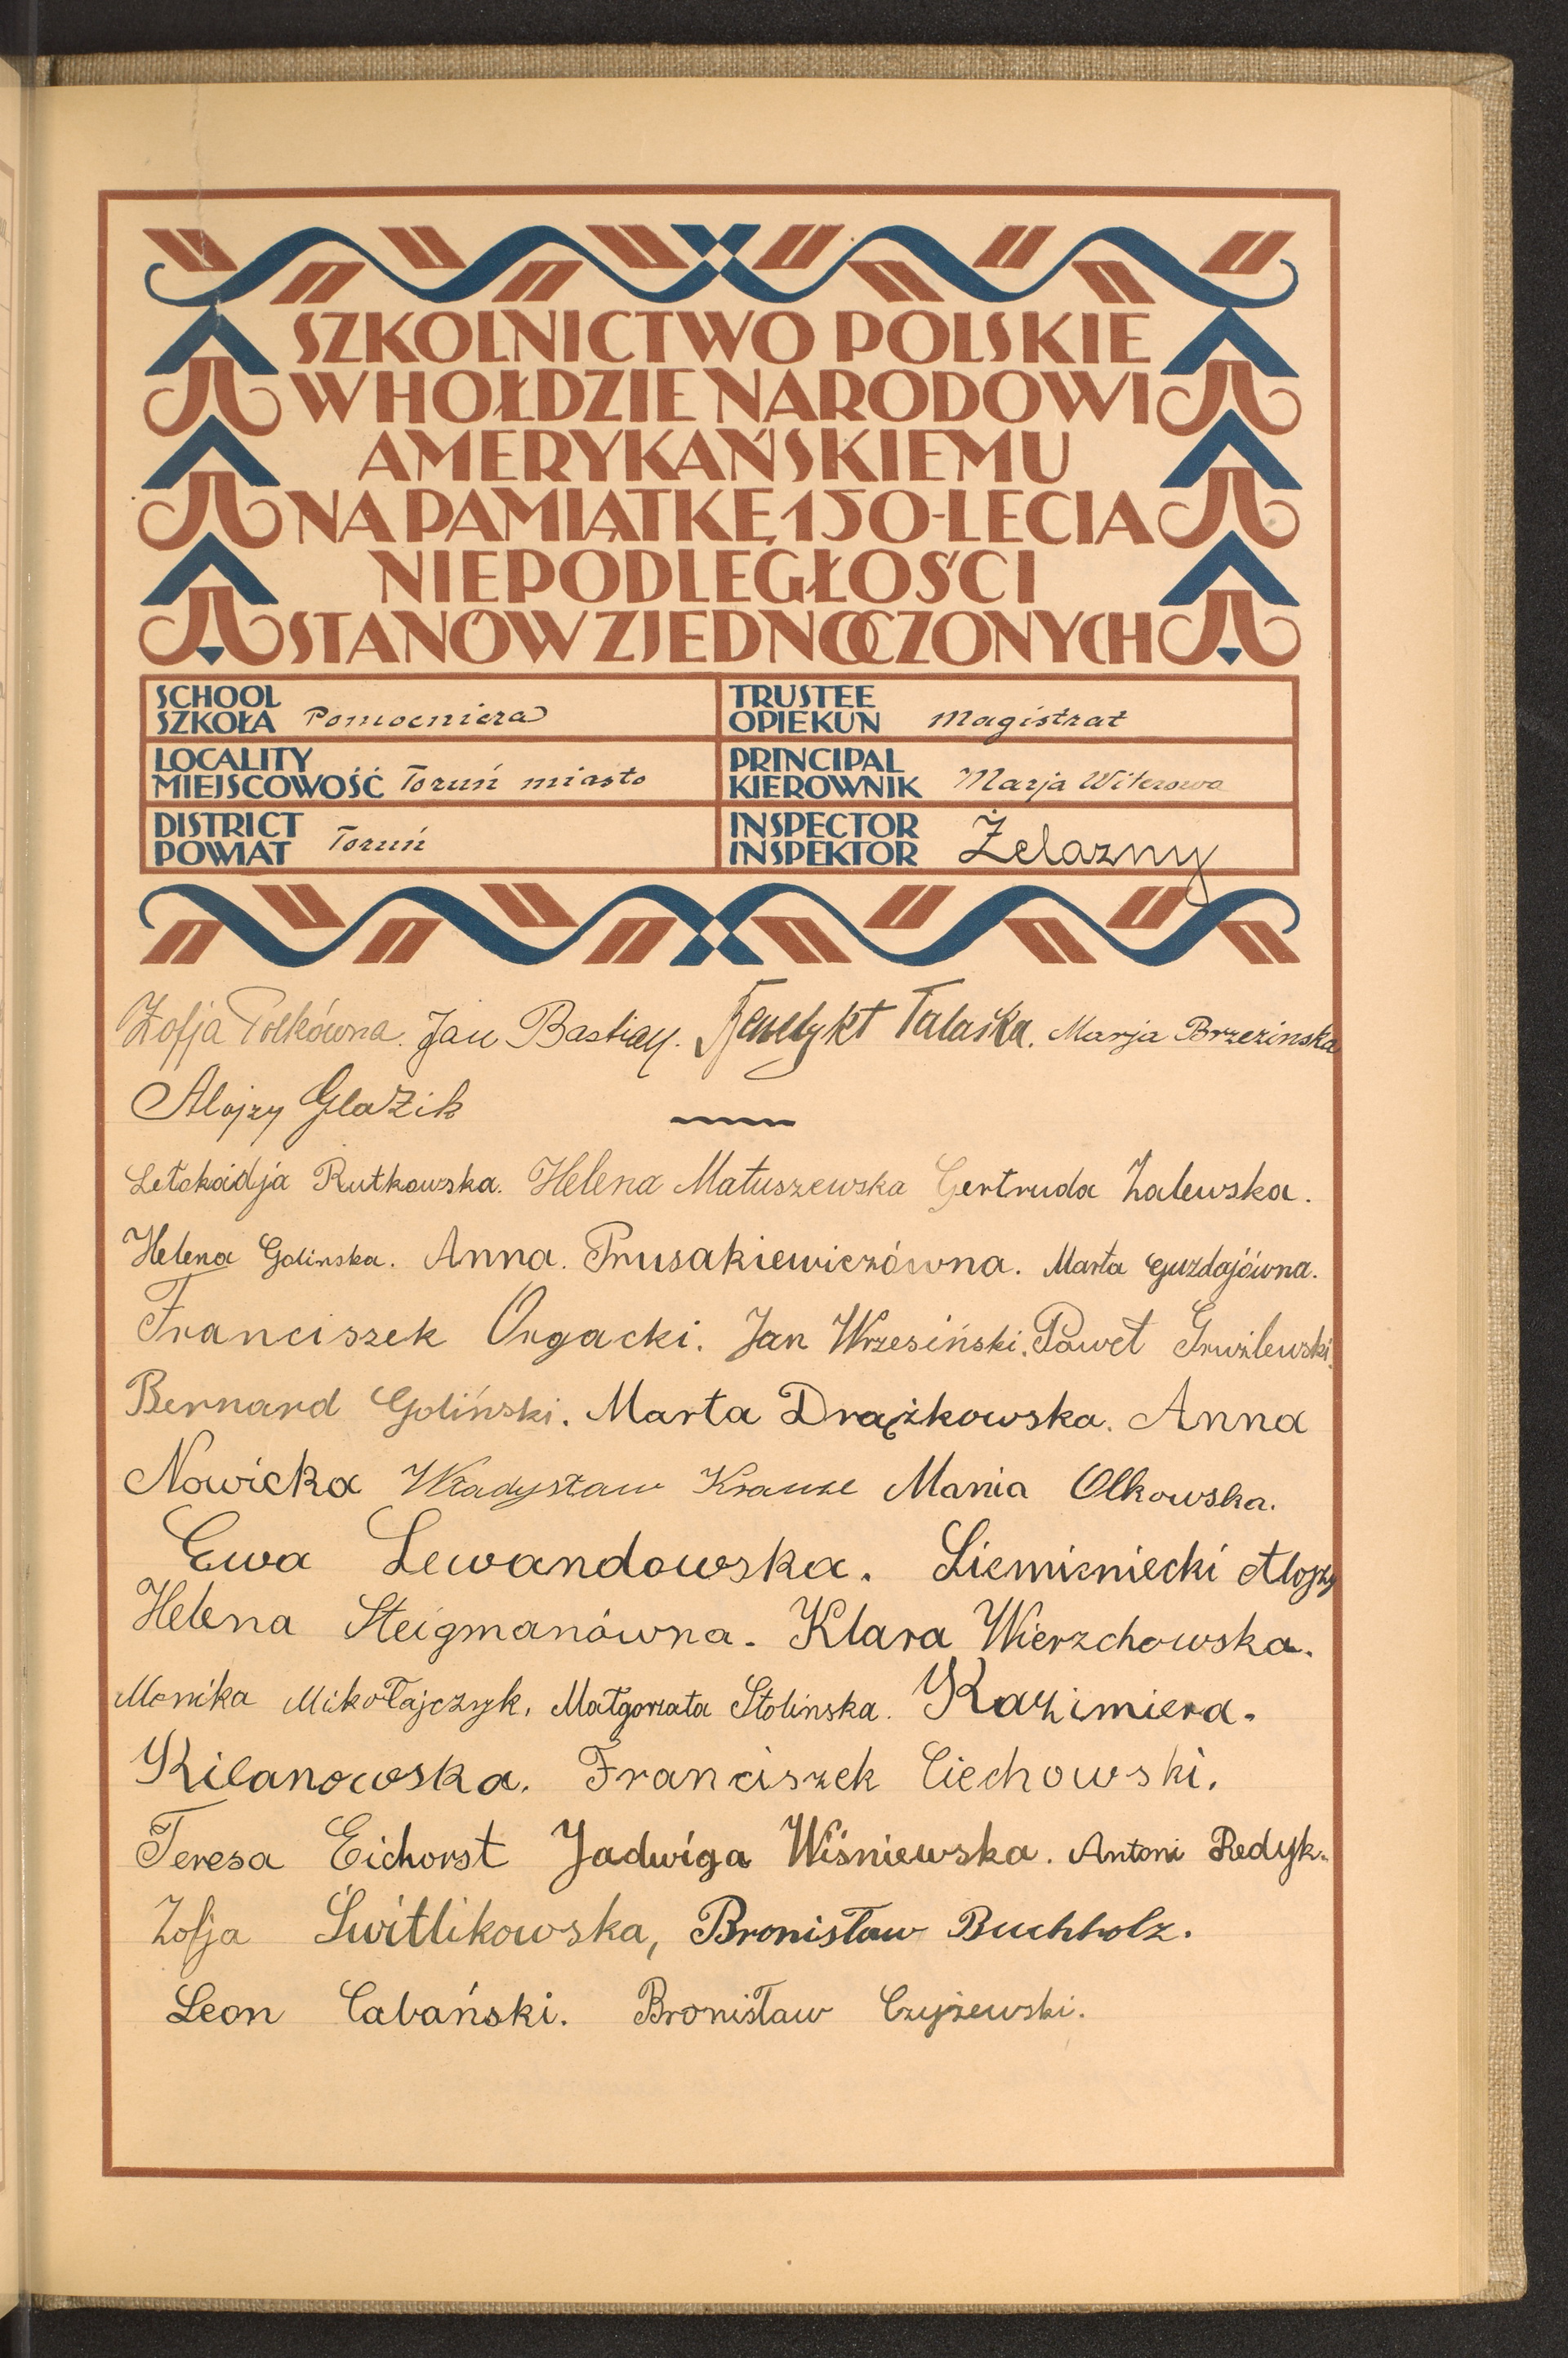 SZKOLNICTWO POLSKIE
W HOŁDZIE NARODOWI
AMERYKAŃSKIEMU
NA PAMIĄTKĘ 150-LECIA
NIEPODLEGŁOŚCI
STANÓW ZJEDNOCZONYCH
SCHOOL
SZKOŁA Pomocnicza
TRUSTEE
OPIEKUN Magistrat
LOCALITY
MIEJSCOWOŚĆ Toruń miasto
PRINCIPAL
KIEROWNIK Marja Witerowa
DISTRICT
POWIAT Toruń
INSPECTOR
INSPEKTOR Żelazny
Zofja Polkówna. Jan Bastian. Benedykt Talaśka. Marja Brzezinska
Alojzy Glazik
Rutkowska. Helena Matuszewska Gertruda Zalewska.
Helena Golinska. Anna. Prusakiewiczówna. Marta Guzdajówna.
Franciszek Orgacki. Jan Wrzesiński. Paweł
Bernard Goliński. Marta Drążkowska. Anna
Nowicka Władysław Krauze Mania Olkowska.
Ewa Lewandowska. Siemieniecki Alojzy
Helena Steigmanówna. Klara Wierzchowska.
Monika Mikołajczyk. Małgorzata Stolinska. Kazimiera.
Kilanowska. Franciszek Ciechowski.
Teresa Eichorst Jadwiga Wiśniewska. Antoni Redyk.
Zofja Świtlikowska, Bronisław Buchholz.
Leon Cabański. Bronisław Czyżewski.